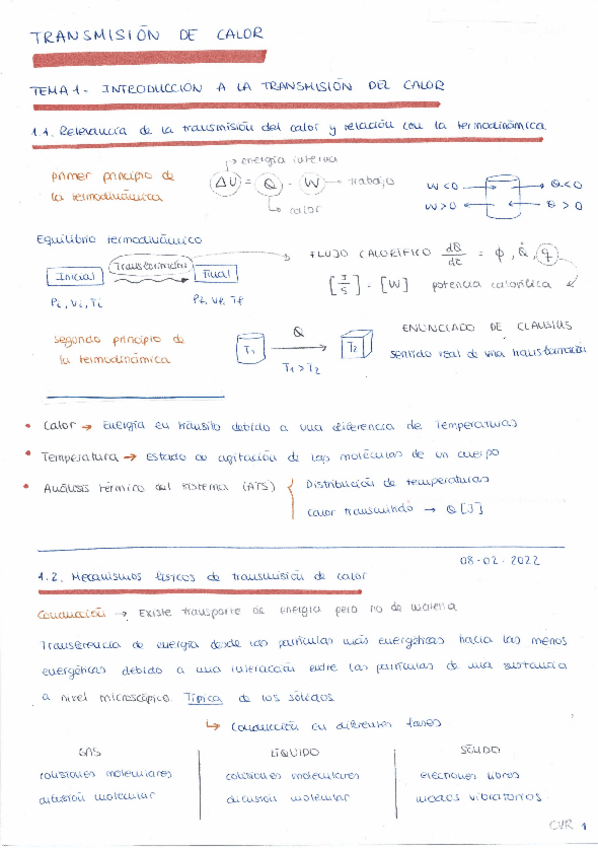 TRANSMISIÓN DE CALOR
TEMA 1 - INTRODUCCION A LA TRANSMISIÓN DEL CALOR
1.1. Relevancia de la transmisión del calor y relación con la termodinámica
primer principio de la termodinámica
energía interna
ΔU = Q - W → trabajo
calor
W<0 Q<0
W>0 Q>0
Equilibrio termodinámico
Inicial Transformación Final
Pi, Vi, Ti Pf, Vf, Tf
FLUJO CALORÍFICO dQ/dt = ϕ, Q̇, q
[J/S] = [W] potencia calorífica
segundo principio de la termodinámica
T1 Q T2
T1 > T2
ENUNCIADO DE CLAUSIUS
sentido real de una transformación
• Calor → Energía en tránsito debido a una diferencia de Temperaturas
• Temperatura → Estado de agitación de las moléculas de un cuerpo
• Análisis térmico del sistema (ATS) { Distribución de temperaturas
calor transmitido → Q [J]
08-02-2022
1.2. Mecanismos físicos de transmisión de calor
Conducción → Existe transporte de energía pero no de materia
Transferencia de energía desde las partículas más energéticas hacia las menos
energéticas debido a una interacción entre las partículas de una sustancia
a nivel microscópico. Típica de los sólidos
↳ Conducción en diferentes fases
GAS LÍQUIDO SÓLIDO
colisiones moleculares colisiones moleculares electrones libres
difusión molecular difusión molecular modos vibratorios
CVR 1